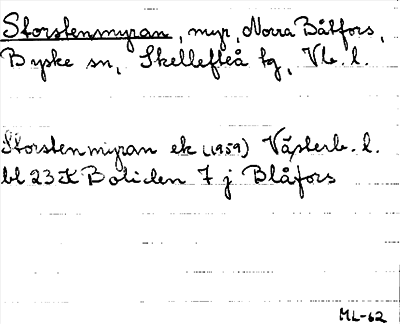 Storstensmyran, myr, Norra Båtfors,
Byske sn, Skellefteå tg, Vb. l.
Storstenmyran ek (1959) Västerb. l.
bl 23 K Boliden 7 j Blåfors
ML-62